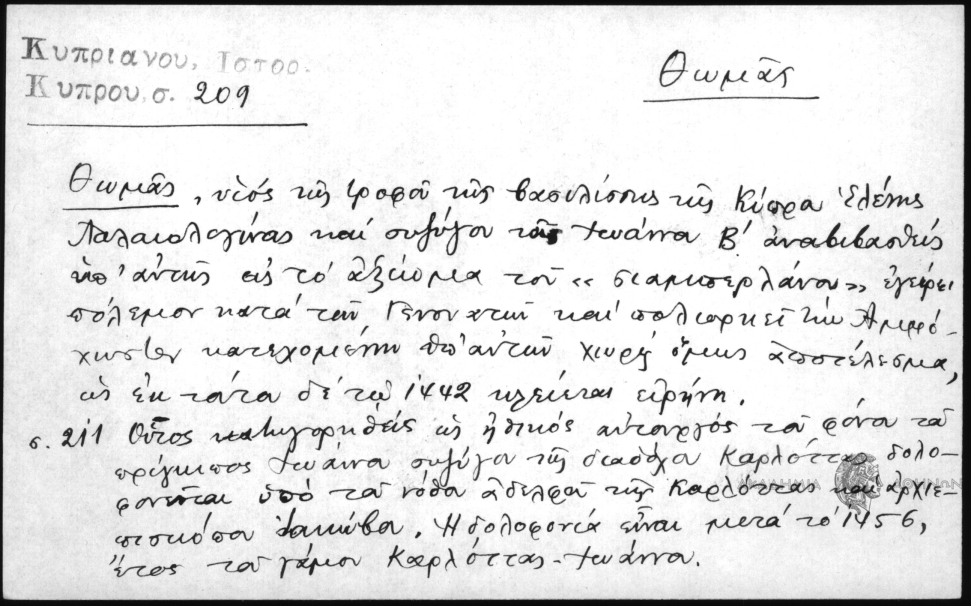 Κυπριανου, Ιστορ.
Κυπρου, σ. 209
Θωμᾶς
Θωμᾶς, υἱός τῆς τροφοῦ τῆς βασιλίσσης τῆς Κύπρου Ἑλένης
Παλαιολογίνας καί συζύγου τοῦ Ἰωάννου Β´ ἀναβιβασθείς
ὑπ' αὐτῆς εἰς τό ἀξίωμα τοῦ « σιαμπερλάνου » ἐγείρει
πόλεμον κατά τῶν Γενουατῶν καί πολιορκεῖ τήν Ἀμμό-
χωστον κατεχομένην ὑπ' αὐτῶν χωρίς ὅμως ἀποτέλεσμα,
ὡς ἐκ τούτου δέ τῷ 1442 κλείεται εἰρήνη.
σ. 211 Οὗτος κατηγορηθείς ὡς ἠθικός αὐτουργός τοῦ φόνου τοῦ
πρίγκιπος Ἰωάννου συζύγου τῆς διαδόχου Καρλόττας δολο-
φονεῖται ὑπό τοῦ νόθου ἀδελφοῦ τῆς Καρλόττας καί ἀρχιε-
πισκόπου Ἰακώβου. Ἡ δολοφονία εἶναι μετά τό 1456,
ἔτος τοῦ γάμου Καρλόττας - Ἰωάννου.
ΑΚΑΔΗΜΙΑ ΑΘΗΝΩΝ